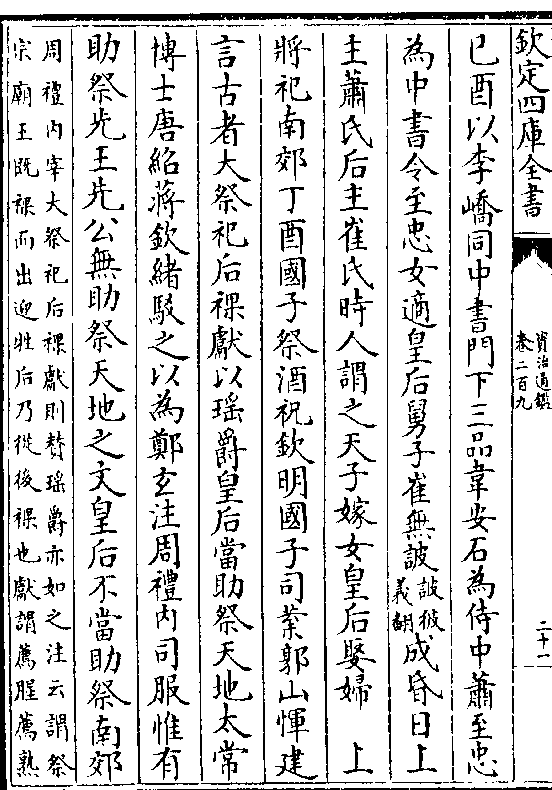 欽定四庫全書
資治通鑑
卷二百九
二十一
已酉以李嶠同中書門下三品韋安石為侍中蕭至忠
為中書令至忠女適皇后舅子崔無詖詖彼義翻成昏日上
主蕭氏后主崔氏時人謂之天子嫁女皇后娶婦 上
將祀南郊丁酉國子祭酒祝欽明國子司業郭山惲建
言古者大祭祀后祼獻以瑶爵皇后當助祭天地太常
博士唐紹蔣欽緒駁之以為鄭玄注周禮内司服惟有
助祭先王先公無助祭天地之文皇后不當助祭南郊
周禮内宰大祭祀后祼獻則賛瑶爵亦如之注云謂祭
宗廟王既祼而出迎牲后乃從後祼也獻謂薦腥薦熟